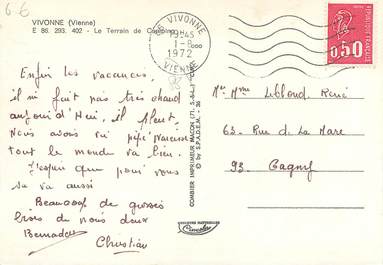 6 6
VIVONNE (Vienne)
E 86. 293. 402 - Le Terrain de Camping
86 VIVONNE
1-8
1972
VIENNE
0,50
Enfin les vacances,
il ne fait pas très chaud
aujourd'hui, il pleut.
Nous avons vu
tout le monde va bien.
J'espère que pour vous
sa va aussi
Beaucoup de grosses
bises de nous deux
Bernadette
Christian
COMBIER IMPRIMEUR MACON (71. S.-&-L.)
© by S.P.A.D.E.M. - 36
Mr Mme Leblond René
63. Rue de La Marne
93. Gagny
COULEURS NATURELLES
Cimcolor